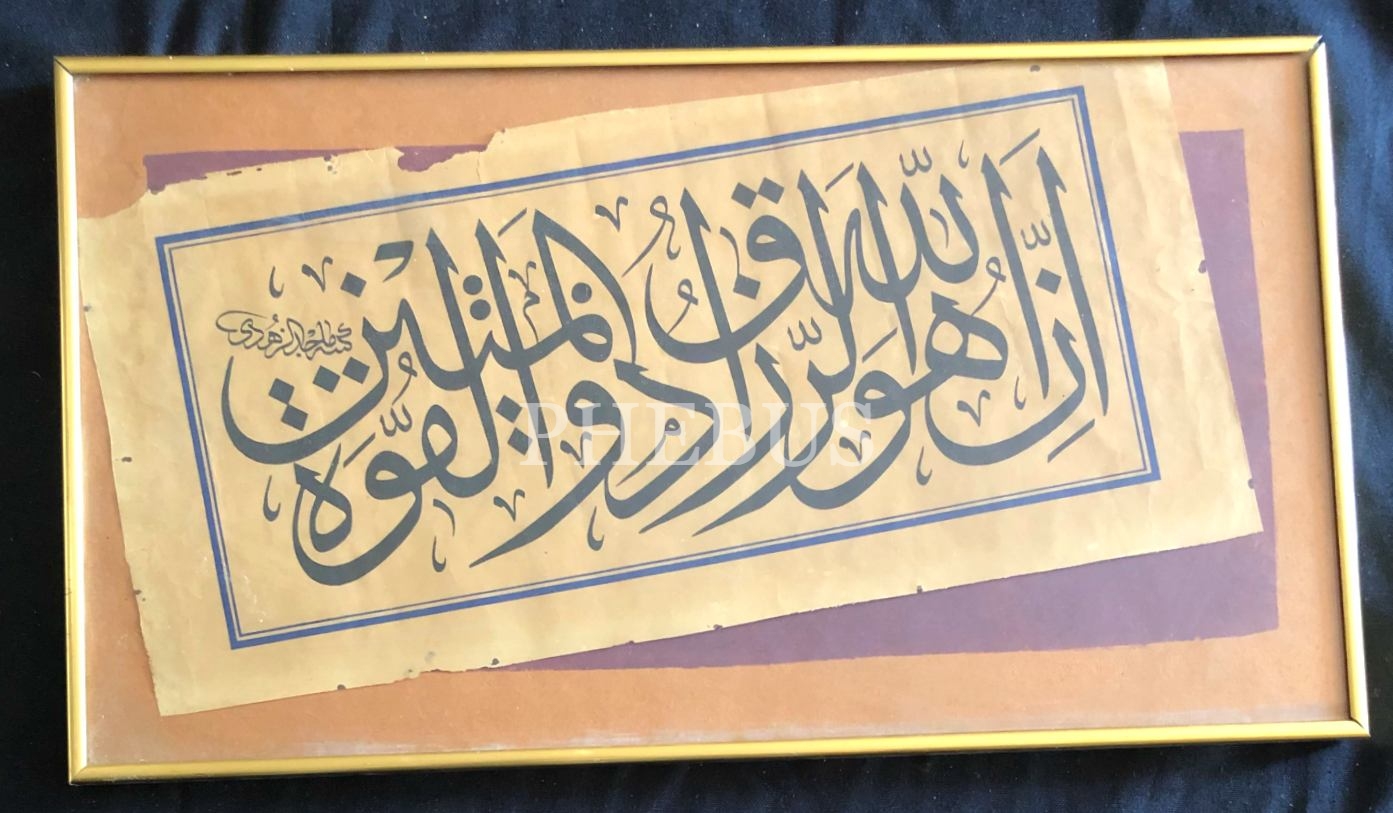 اِنَّ اللّٰهَ هُوَ الرَّزَّاقُ ذُو الْقُوَّةِ الْمَتِينُ
كتبه ماجد الزهدى
PHEBUS